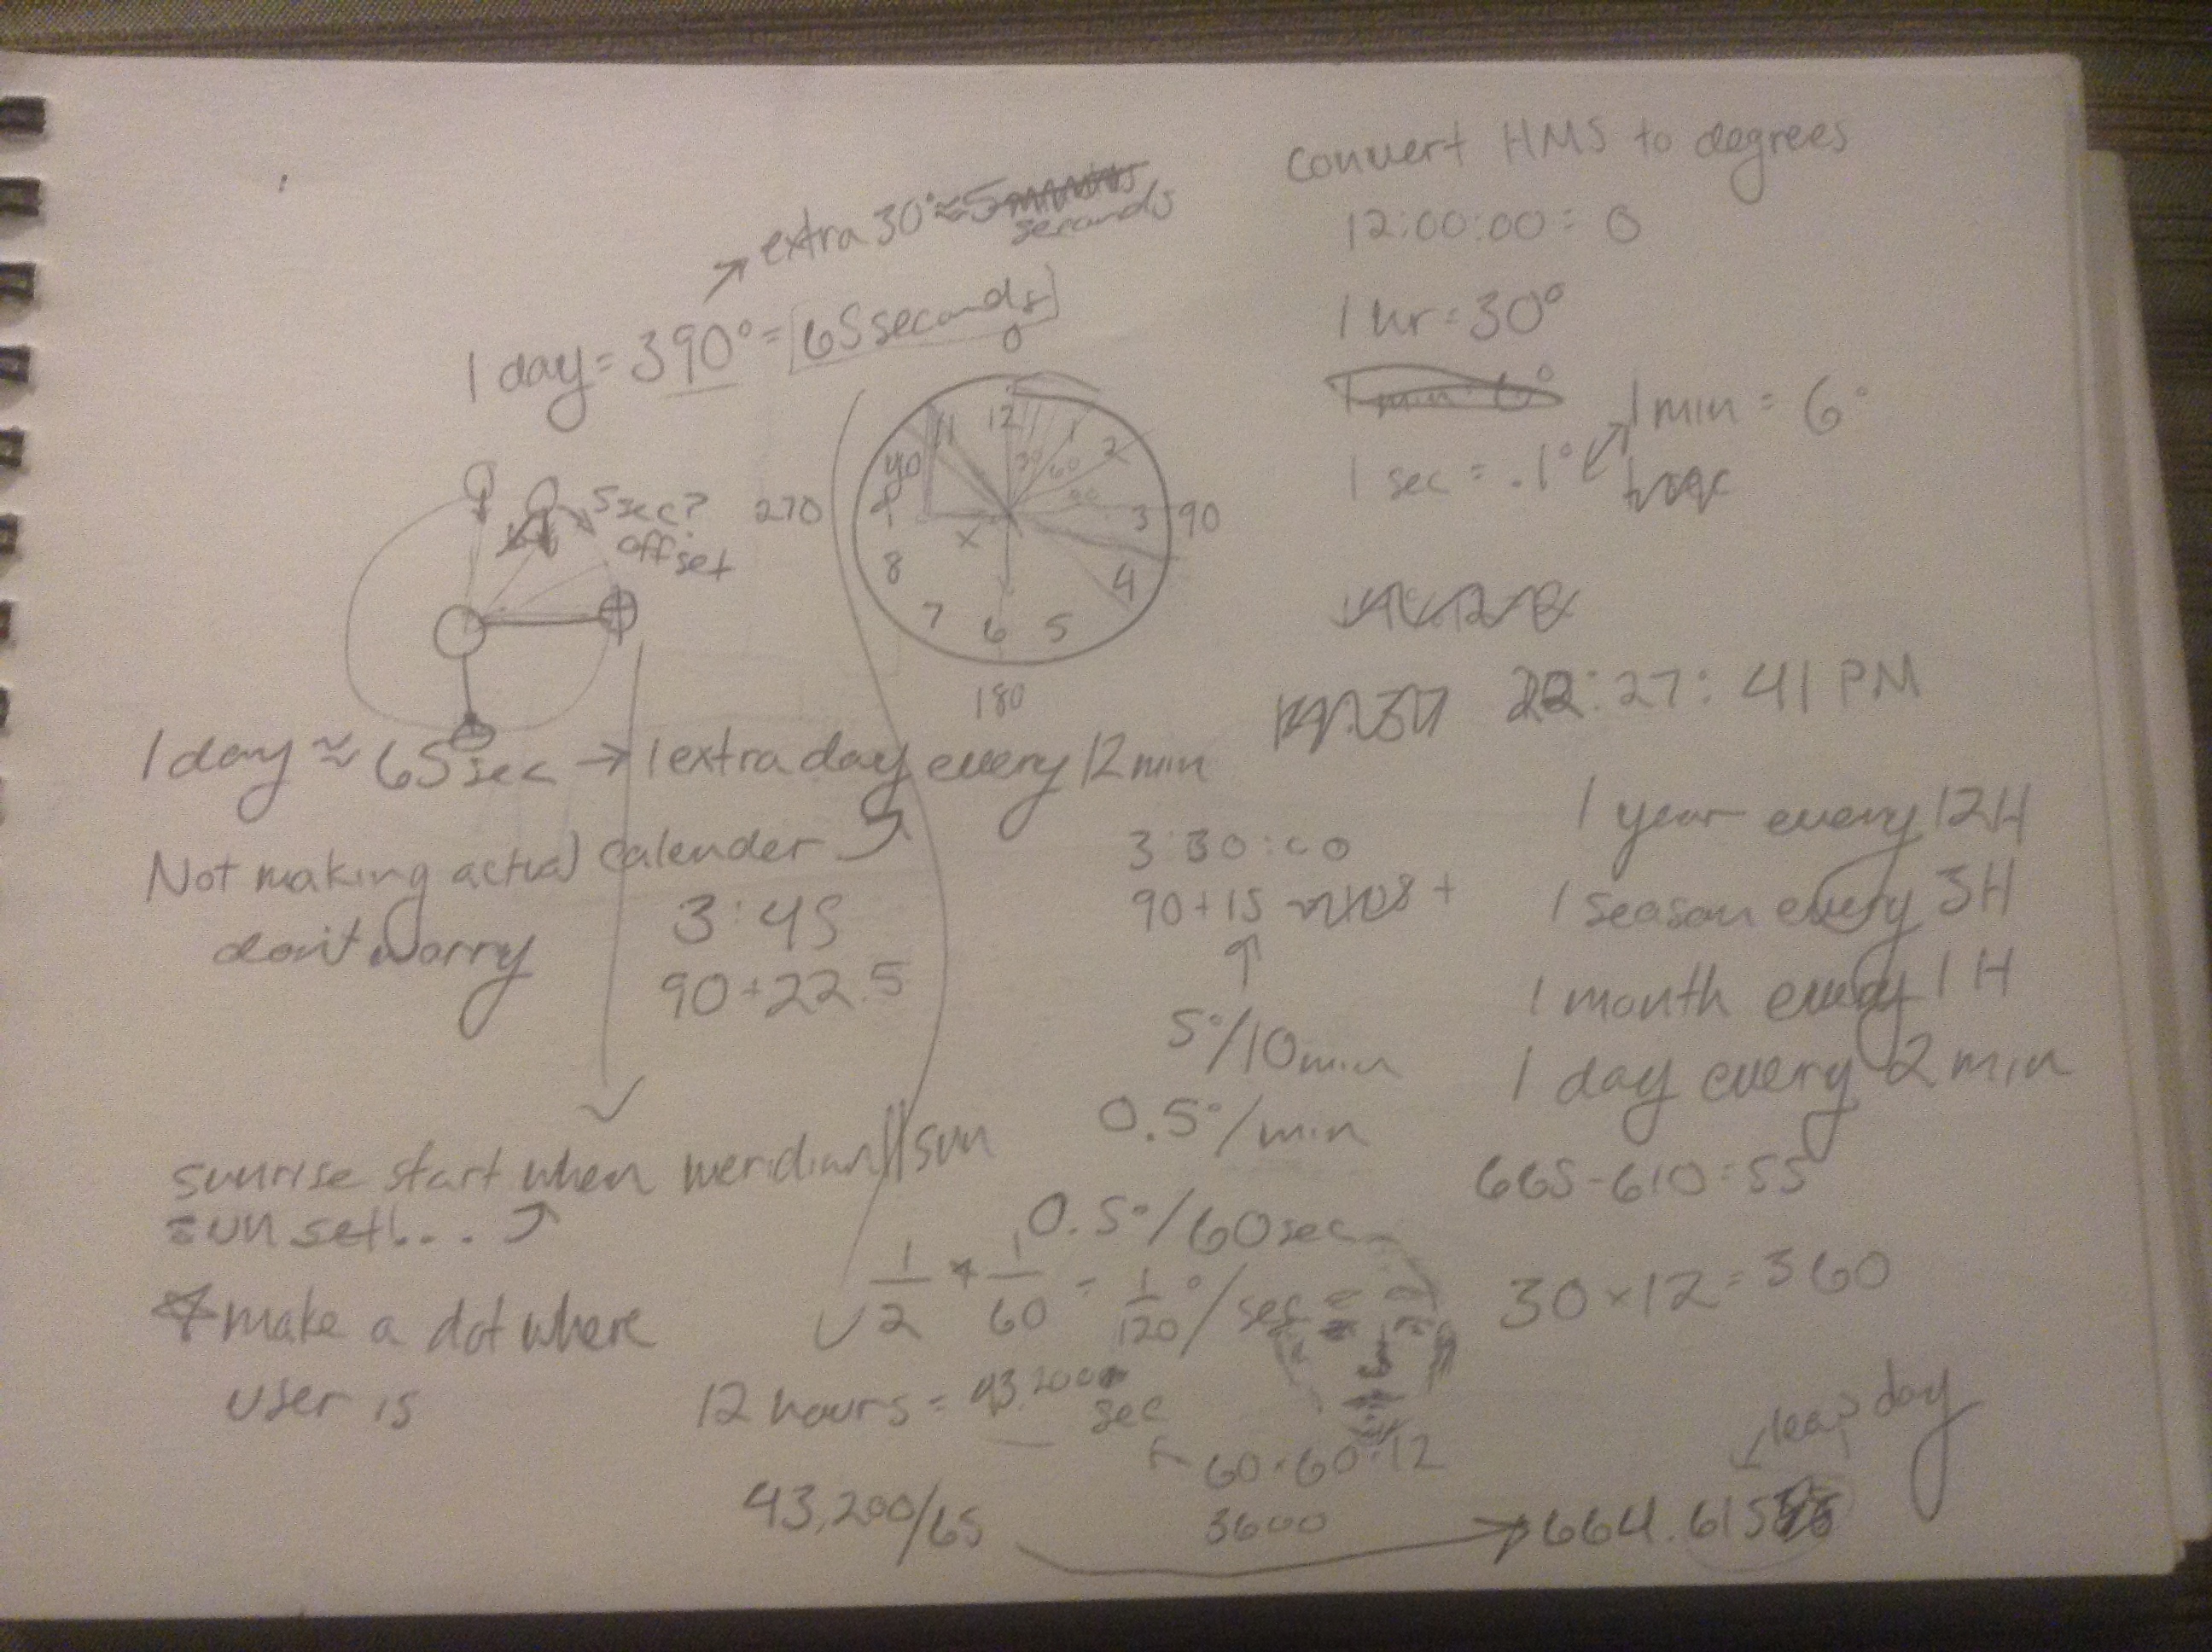 convert HMS to degrees
12:00:00 = 0
1 hr = 30°
1 min = 6°
1 min = 6°
1 sec = .1°
22:27:41 PM
extra 30° ≈ 5 minutes
seconds
1 day = 390° = 65 seconds
0
12
11
1
2
30
60
90
270
3
90
8
4
X
7
6
5
180
5 sec?
offset
1 day ≈ 65 sec → 1 extra day every 12 min
Not making actual calender
don't worry
3:45
90+22.5
3:30:00
90+15
5°/10 min
0.5°/min
0.5°/60 sec
1/2 * 1/60 = 1/120 °/sec =
1 year every 12H
1 season every 3H
1 month every 1H
1 day every 2 min
665-610=55
30×12=360
sunrise start when meridian || sun
sunset!...
make a dot where
user is
12 hours = 43,200
sec
60·60·12
3600
43,200/65
leap day
664.615